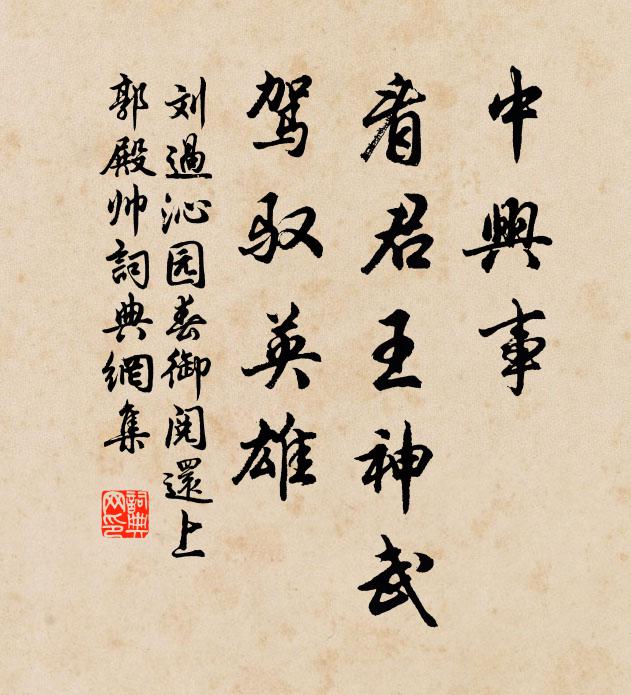 中興事
看君王神武
驾驭英雄
刘過沁园春御閱還上
郭殿帅詞典網集
詞典
网印